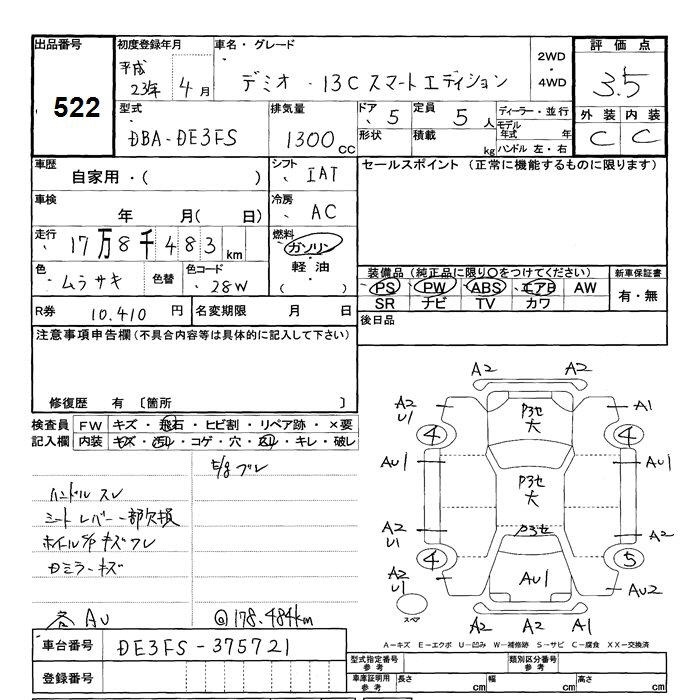 出品番号 初度登録年月 車名・グレード 評価点
522
平成 23年 4月
デミオ・13C スマートエディション
2WD ・ 4WD
3.5
型式 排気量 ドア 定員 ディーラー・並行
DBA-DE3FS 1300cc 5 5人
形状 積載 kg モデル年式 年 ハンドル 左・右
外装 内装
C C
車歴 自家用・( )
シフト IAT
セールスポイント (正常に機能するものに限ります)
車検 年 月( 日)
冷房 AC
走行 17万8千483km
燃料 ガソリン ・ 軽油 ( )
色 ムラサキ 色替 色コード 28W
装備品(純正品に限り○をつけてください) 新車保証書
PS PW ABS エアB AW 有・無
SR ナビ TV カワ
R券 10.410円 名変期限 月 日
後日品
注意事項申告欄(不具合内容等は具体的に記入して下さい)
修復歴 有 〔箇所 〕
検査員記入欄 FW キズ・飛石・ヒビ割・リペア跡・×要
内装 キズ・汚れ・コゲ・穴・凹・キレ・破レ
E/gブレ
ハンドルスレ
シートレバー一部欠損
ホイルキズフレ
ロミラーキズ
各AU
Q178.484km
A2 A2
A2 U1 A1
P3セ 大
4 4
AU1 AU1
P3セ 大
A2 U1 A2
P3セ
4 5
A2 U1 AU1 AU2
スペア
A2 A2 A1
A-キズ E-エクボ U-凹み W-補修跡 S-サビ C-腐食 XX-交換済
車台番号 DE3FS-375721
型式指定番号 参考 類別区分番号 参考
登録番号
車庫証明用 参考 長さ cm 幅 cm 高さ cm